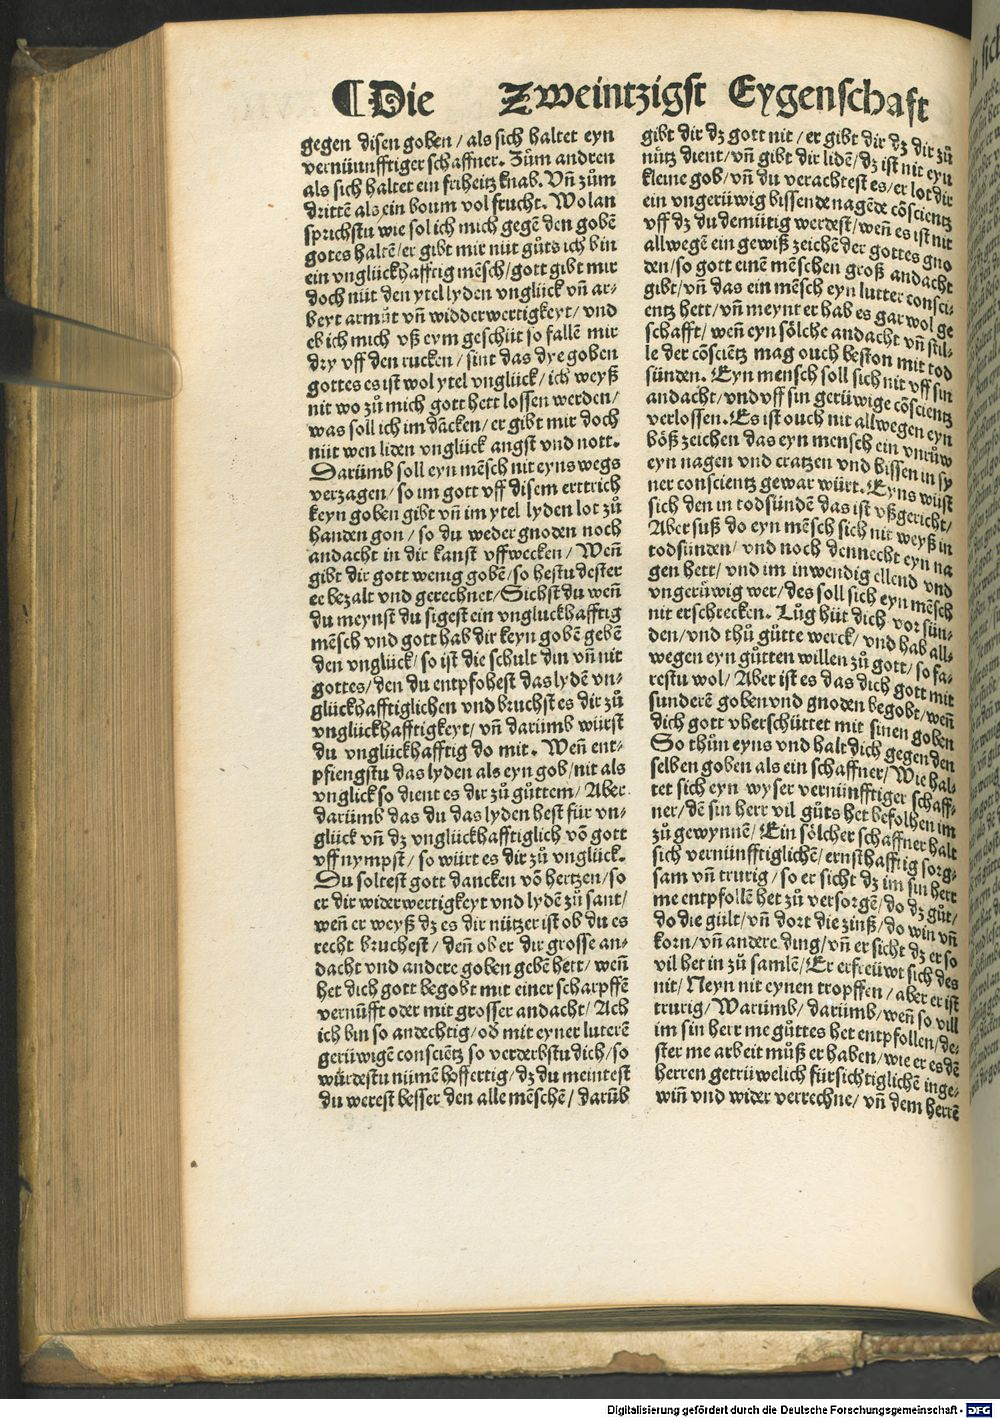 ¶ Die Zweintzigst Eygenschaft
gegen disen goben / als sich haltet eyn
vernüunfftiger schaffner. Zům andren
als sich haltet ein friheitz knab. Vñ zům
drittẽ als ein boum vol frucht. Wolan
sprichstu wie sol ich mich gegẽ den gobẽ
gotes haltẽ / er gibt mir nüt gůts ich bin
ein vnglückhafftig mẽsch / gott gibt mir
doch nüt den ytel lyden vnglück vñ ar⸗
beyt armůt vñ widderwertigkeyt / vnd
eb ich mich vß eym geschüt so fallẽ mir
dry vff den rucken / sint das dye goben
gottes es ist wol ytel vnglück / ich weyß
nit wo zů mich gott hett lossen werden /
was soll ich im dãcken / er gibt mir doch
nüt wen liden vnglück angst vnd nott.
Darümb soll eyn mẽsch nit eyns wegs
verzagen / so im gott vff disem erttrich
keyn goben gibt vñ im ytel lyden lot zů
handen gon / so du weder gnoden noch
andacht in dir kanst vffwecken / Weñ
gibt dir gott wenig gobẽ / so hestu dester
ee bezalt vnd gerechnet / Sichst du weñ
du meynst du sigest ein vngluckhafftig
mẽsch vnd gott hab dir keyn gobẽ gebẽ
den vnglück / so ist die schult din vñ nit
gottes / den du entpfohest das lydẽ vn⸗
glückhafftiglichen vnd bruchst es dir zů
vnglückhafftigkeyt / vñ darümb würst
du vnglückhafftig do mit. Weñ ent⸗
pfiengstu das lyden als eyn gob / nit als
vnglick so dient es dir zů gůttem / Aber
darümb das du das lyden hest für vn⸗
glück vñ dz vnglückhafftiglich võ gott
vffnympst / so würt es dir zů vnglück.
Du soltest gott dancken võ hertzen / so
er dir widerwertigkeyt vnd lydẽ zů sant /
weñ er weyß dz es dir nützer ist ob du es
recht bruchest / deñ ob er dir grosse an⸗
dacht vnd andere goben gebẽ hett / weñ
het dich gott begobt mit einer scharpffẽ
vernüfft oder mit grosser andacht / Ach
ich bin so andechtig / od̕ mit eyner luterẽ
gerüwigẽ consciẽtz so verderbstu dich / so
würdestu nümẽ hoffertig / dz du meintest
du werest besser den alle mẽschẽ / darüb
gibt dir dz gott nit / er gibt dir dz dir zů
nütz dient / vñ gibt dir lidẽ / dz ist nit eyn
kleine gob / vñ du verachtest es / er lot dir
ein vngerüwig bissende nagẽde cõscientz
vff dz du demütig werdest / weñ es ist nit
allwegẽ ein gewiß zeichẽ der gottes gno
den / so gott einẽ mẽschen groß andacht
gibt / vñ das ein mẽsch eyn lutter consci⸗
entz hett / vñ meynt er hab es gar wol ge
schafft / weñ eyn sölche andacht vñ stil⸗
le der cõsciẽtz mag ouch beston mit tod
sünden. Eyn mensch soll sich nit vff sin
andacht / vnd vff sin gerüwige cõscientz
verlossen. Es ist ouch nit allwegen eyn
böß zeichen das eyn mensch ein vnrůw
eyn nagen vnd cratzen vnd bissen in sy
ner conscientz gewar würt. Eyns wüst
sich den in todsündẽ das ist vßgericht /
Aber suß do eyn mẽsch sich nit weyß in
todsünden / vnd noch dennecht eyn na
gen hett / vnd im inwendig ellend vnd
vngerüwig wer / des soll sich eyn mẽsch
nit erschrecken. Lůg hüt dich vor sün⸗
den / vnd thů gůtte werck / vnd hab all⸗
wegen eyn gůtten willen zů gott / so fa⸗
restu wol / Aber ist es das dich gott mit
sunderẽ goben vnd gnoden begobt / weñ
dich gott vberschüttet mit sinen goben
So thůn eyns vnd halt dich gegen den
selben goben als ein schaffner / Wie hal⸗
tet sich eyn wyser vernünfftiger schaff⸗
ner / dẽ sin herr vil gůts het befolhen im
zů gewynnẽ / Ein sölcher schaffner halt
sich vernünfftiglichẽ / ernsthafftig sorg⸗
sam vñ trurig / so er sicht dz im sin herr
me entpfollẽ het zů versorgẽ / do dz gůt /
do die gült / vñ dort die zinß / do win vñ
korn / vñ andere ding / vñ er sicht dz er so
vil het in zů samlẽ / Er erfreüwt sich des
nit / Neyn nit eynen tropffen / aber er ist
trurig / Warümb / darümb / weñ so vill
im sin herr me gůttes het entpfollen / de⸗
ster me arbeit můß er haben / wie er es dẽ
herren getrüwelich fürsichtiglichẽ inge⸗
wiñ vnd wider verrechne / vñ dem herrẽ
Digitalisierung gefördert durch die Deutsche Forschungsgemeinschaft - DFG